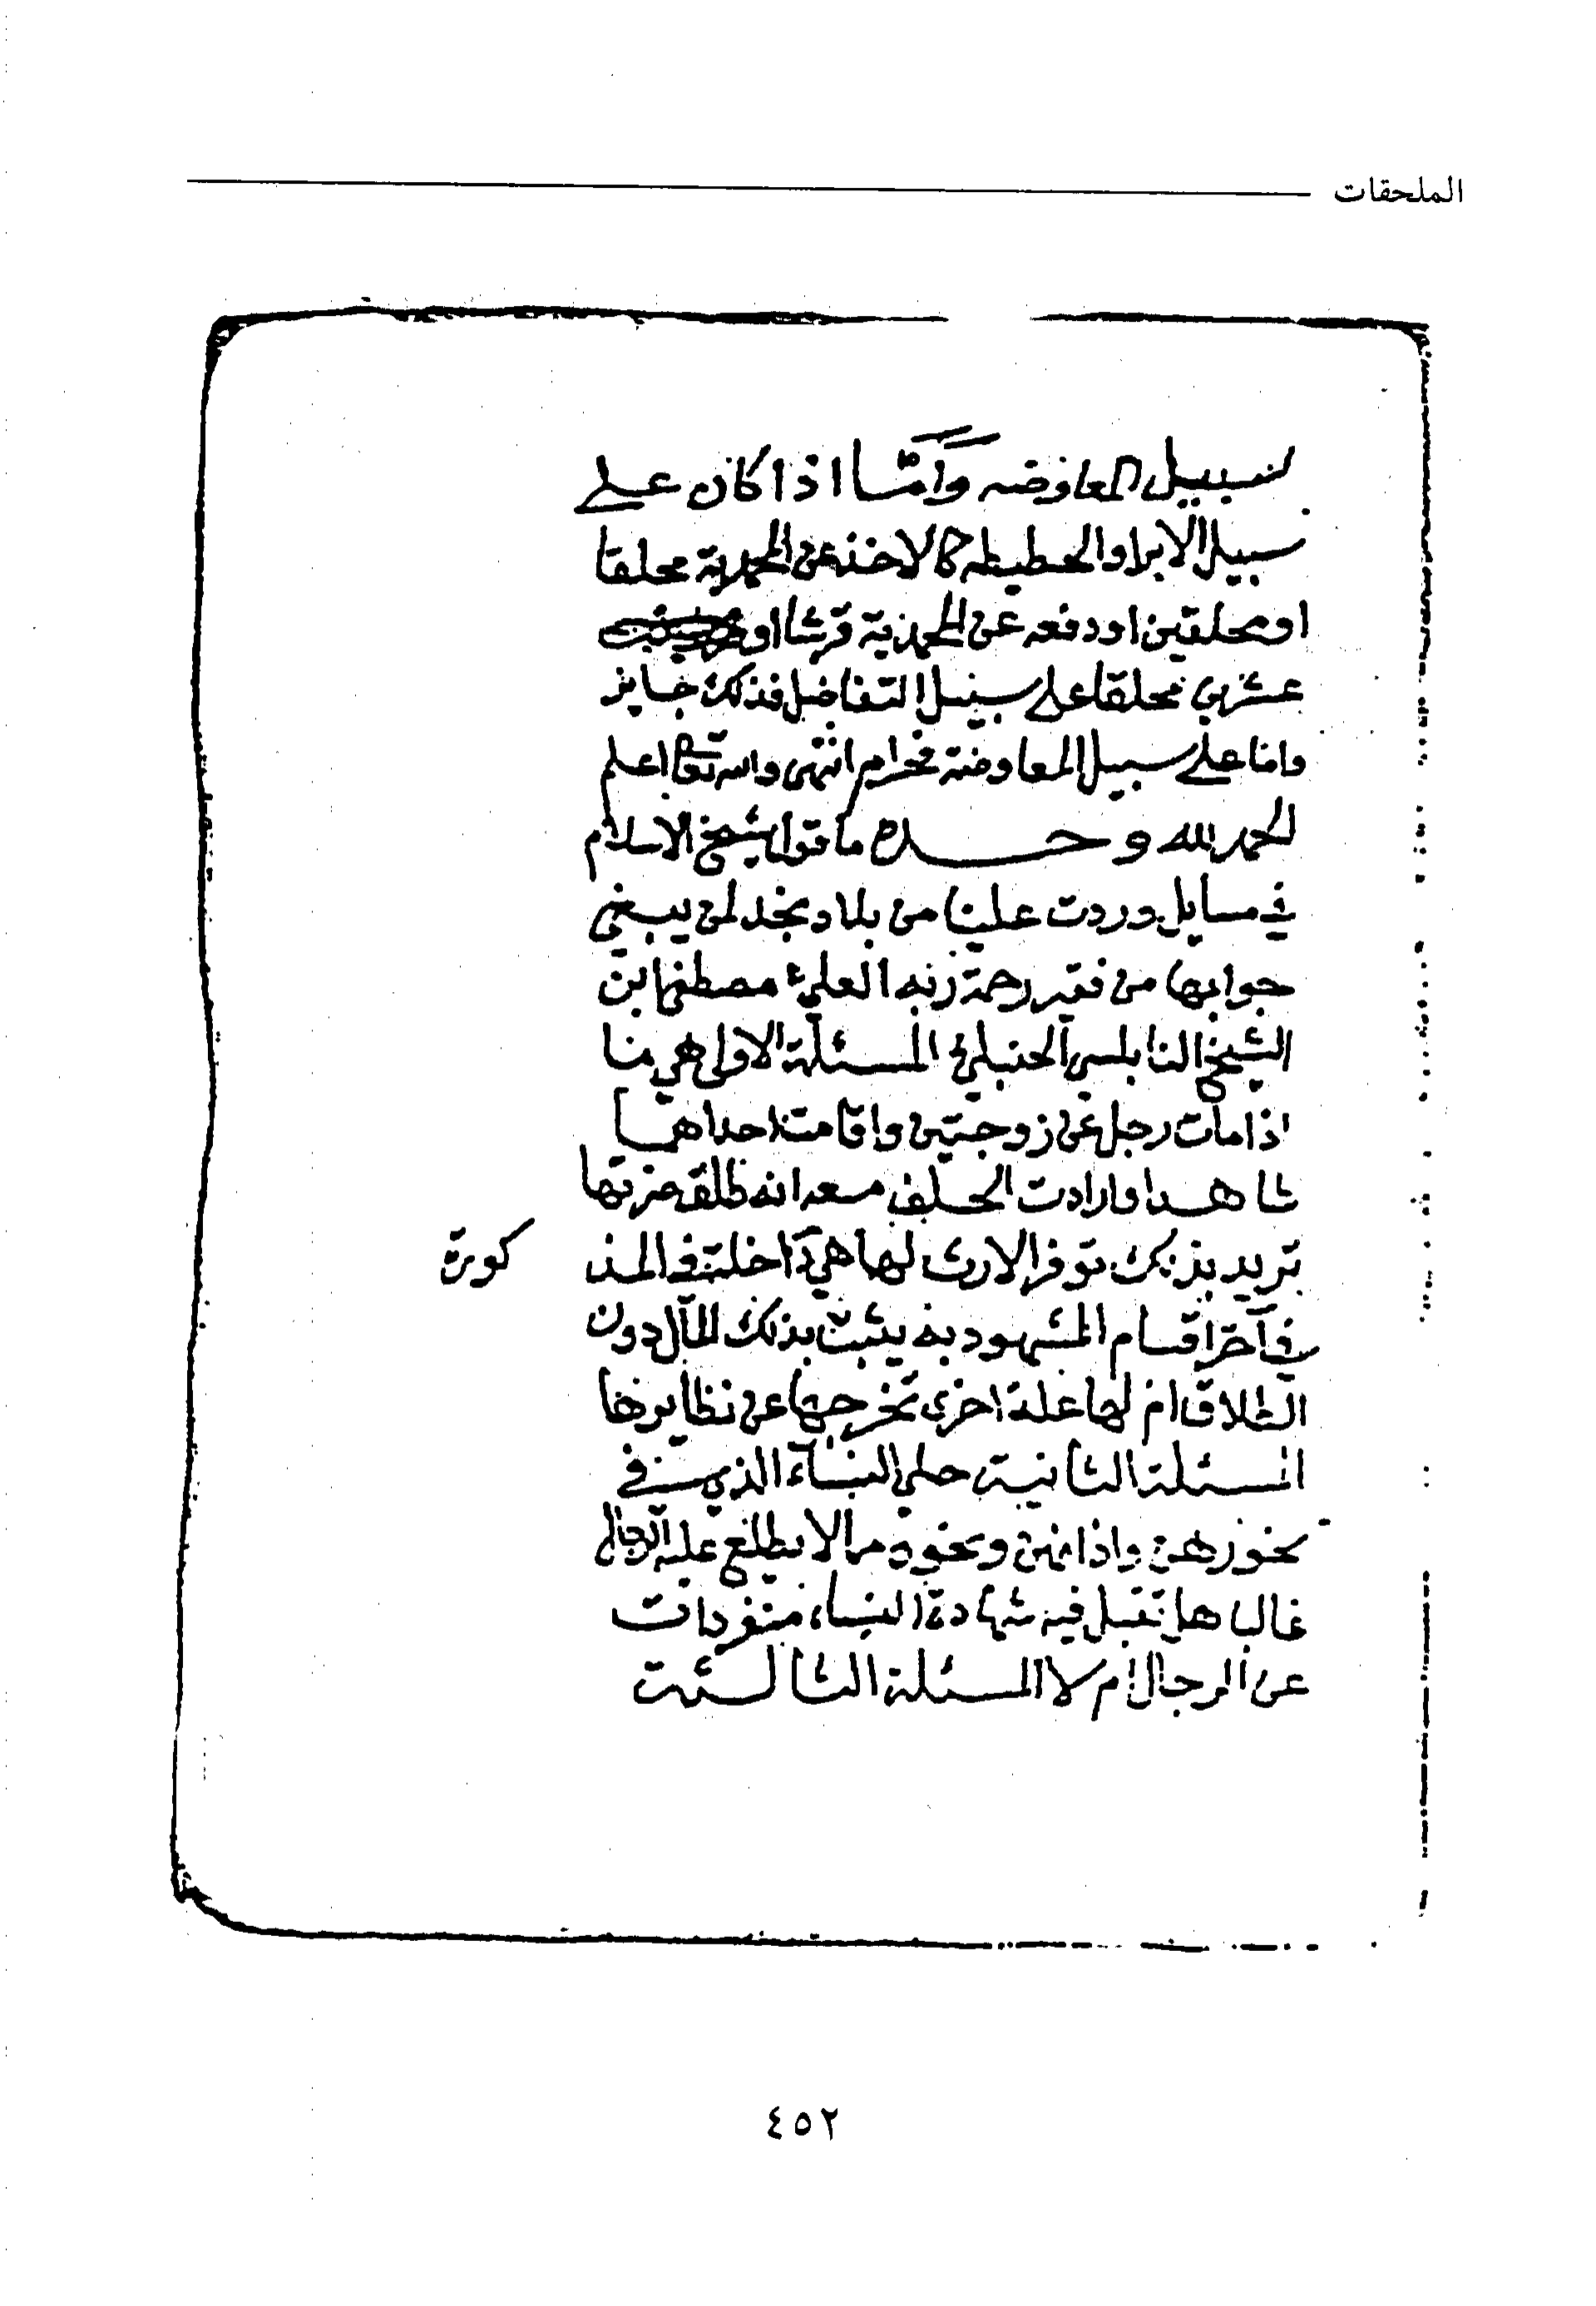 الملحقات
لسبيل المعاوضه وأمّا اذا كان على
سبيل الابرا والحطيطه كالاخذ عن المحمدية محلقا
او محلقين او دفعه عن المحمدية قرشا او
عشرين محلقا على سبيل التفاضل فذلك جايز
واما على سبيل المعاوضة فحرام انتهى والله تعالى اعلم
الحمد لله وحده ما قول شيخ الاسلام
في مسايل وردت علينا من بلاد نجد لمن يبغي
جوابها من فقير رحمة ربه العلي مصطفى ابن
الشيخ النابلسي الحنبلي المسئلة الاولى هي ما
اذا مات رجل عن زوجتين واقامت احداهما
شاهدا وارادت الحلف معه انه طلق ضرتها
تريد بذلك توفر الارث لها هي داخلة في المذ كورة
في آخر اقسام المشهود به يثبت بذلك المال دون
الطلاق ام لها علة اخرى تخرجها عن نظايرها
المسئلة الثانية حلي النساء الذي في
نحورهن واذانهن ونحوه مما لا يطلع عليه الرجال
غالبا هل تقبل فيه شهادة النساء منفردات
عن الرجال ام لا المسئلة الثالثة
٤٥٢